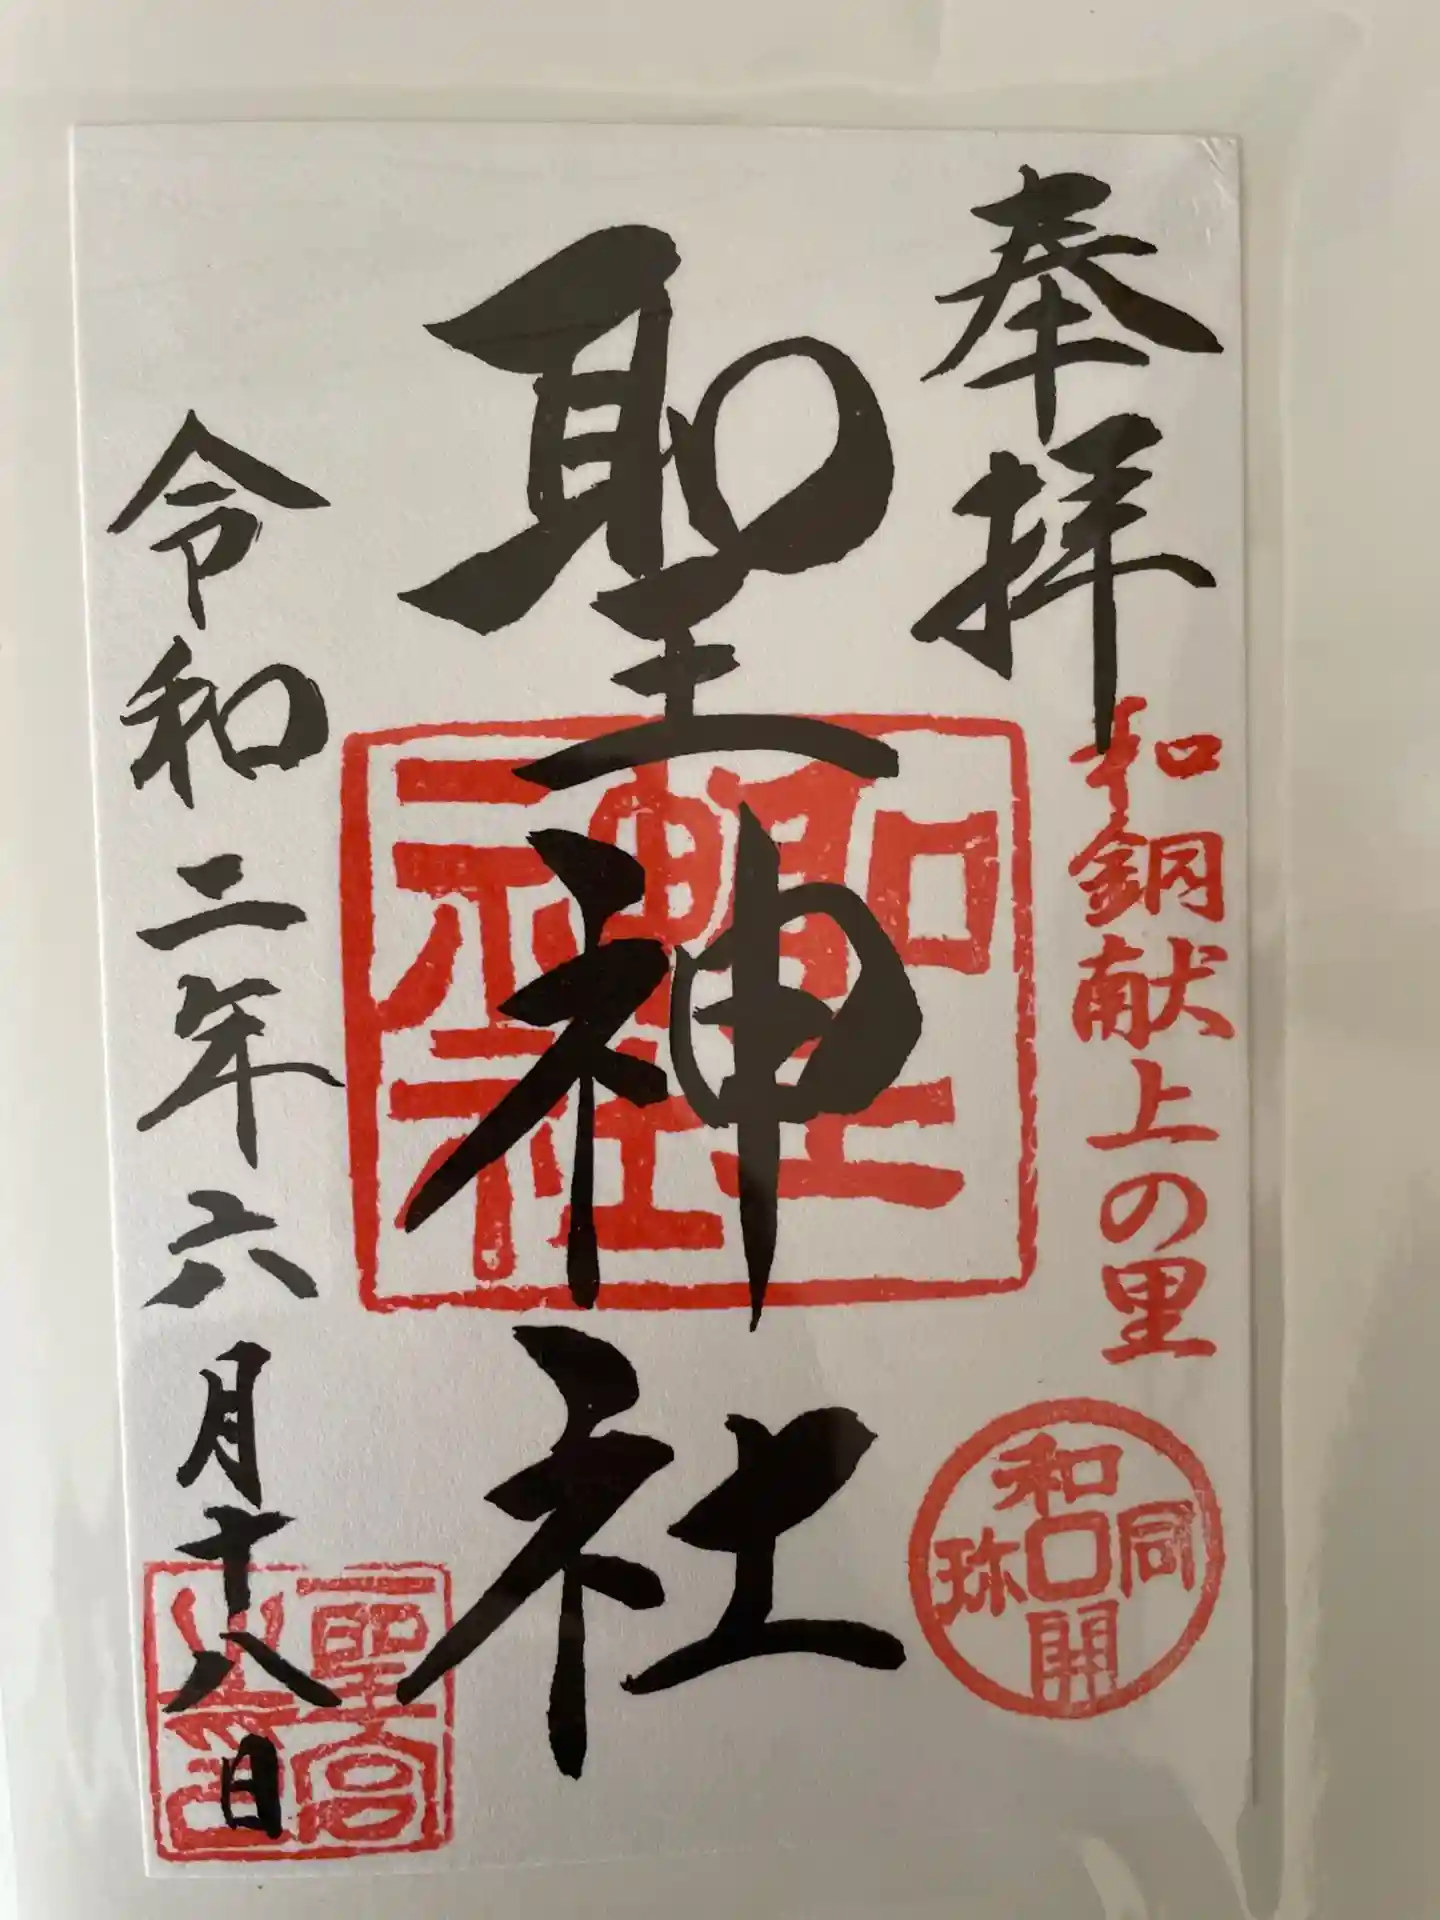 奉拝
和銅献上の里
和同開珎
聖神社
聖神社
令和二年六月十八日
聖宮之印